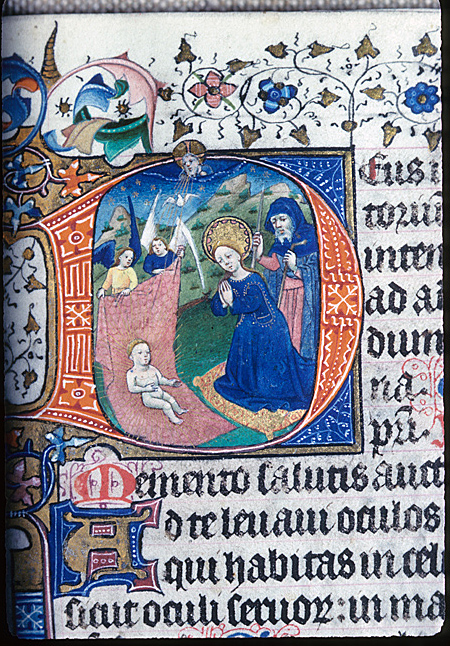 Deus i
toriu
inten
ad ad
dum
na.
pri.
Memento salutis auct
Ad te leuaui oculos
qui habitas in cel
sicut oculi seruoꝝ: in ma